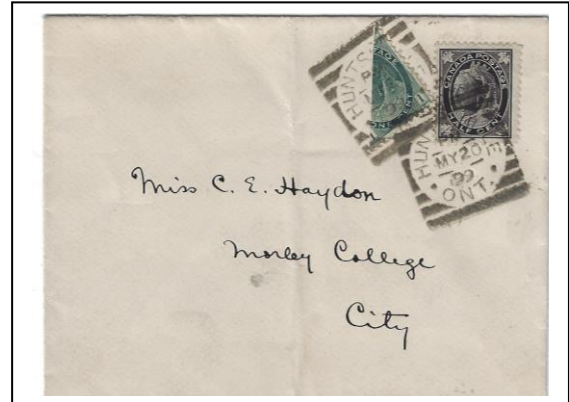 HUNTS
ONE CENT
CANADA POSTAGE
HALF CENT
HUN
MY 20
99
ONT.
Miss C. E. Haydon
Morley College
City